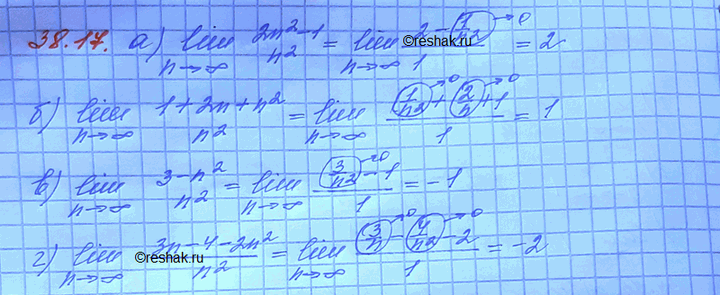 38.17. а) lim n→∞ (2n²-1)/n² = lim n→∞ (2 - 1/n²→0)/1 = 2
©reshak.ru
б) lim n→∞ (1+2n+n²)/n² = lim n→∞ (1/n²→0 + 2/n→0 + 1)/1 = 1
в) lim n→∞ (3-n²)/n² = lim n→∞ (3/n²→0 - 1)/1 = -1
г) lim n→∞ (3n-4-2n²)/n² = lim n→∞ (3/n→0 - 4/n²→0 - 2)/1 = -2
©reshak.ru